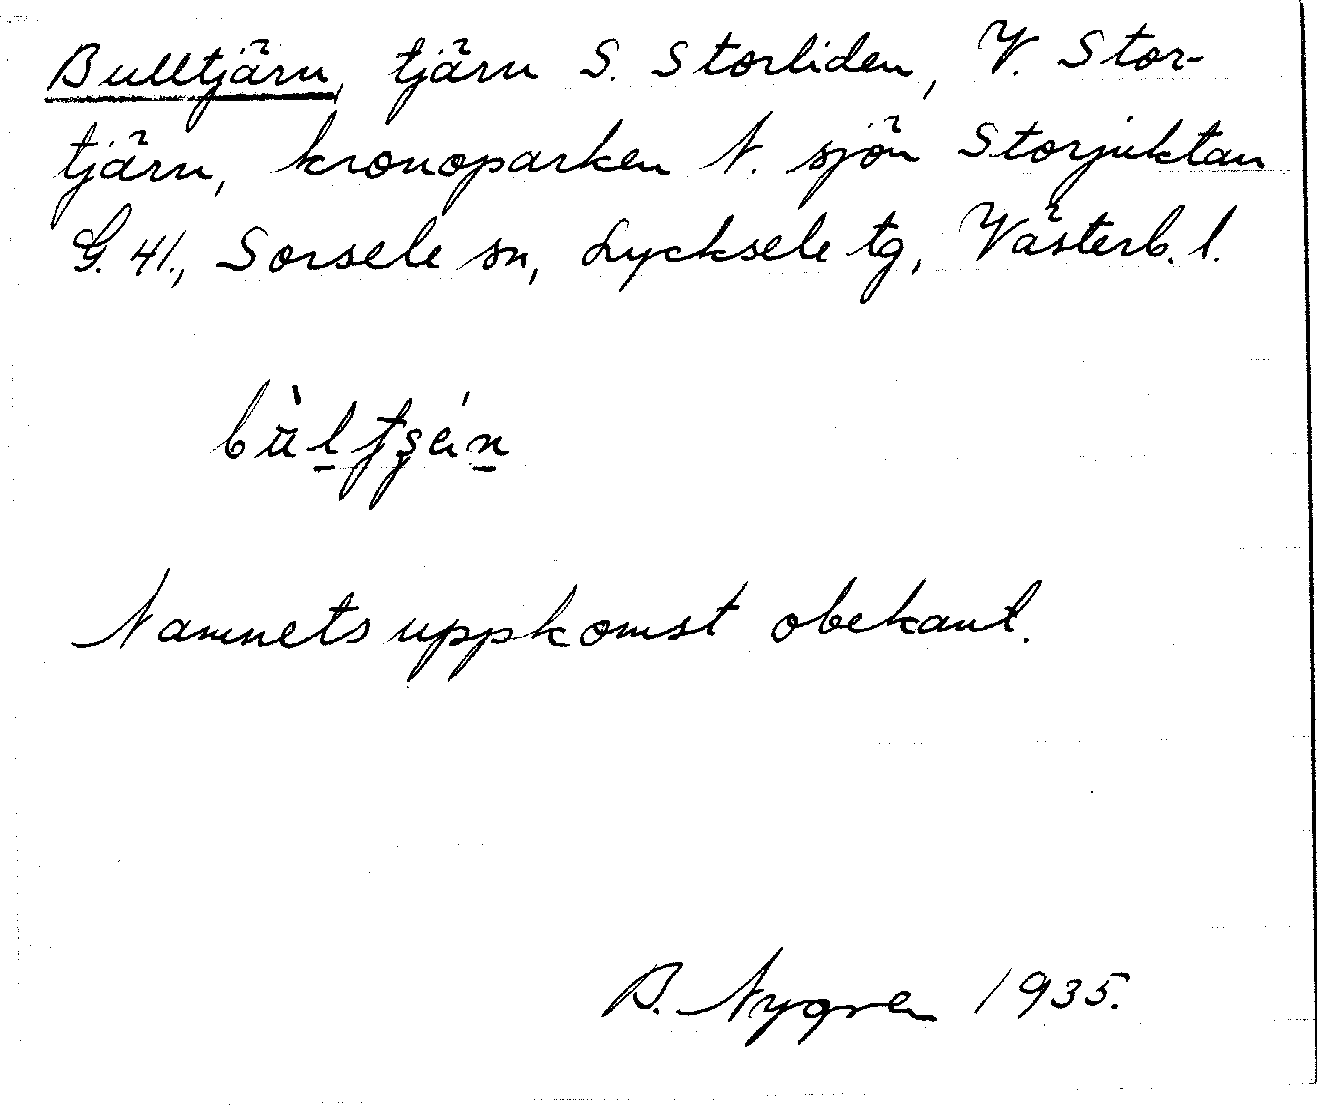 Bulltjärn, tjärn S. Storliden, V. Stor-
tjärn, kronoparken N. sjön Storjuktan
G. 41., Sorsele sn, Lycksele tg, Västerb. l.
Namnets uppkomst obekant.
B. Nygren 1935.